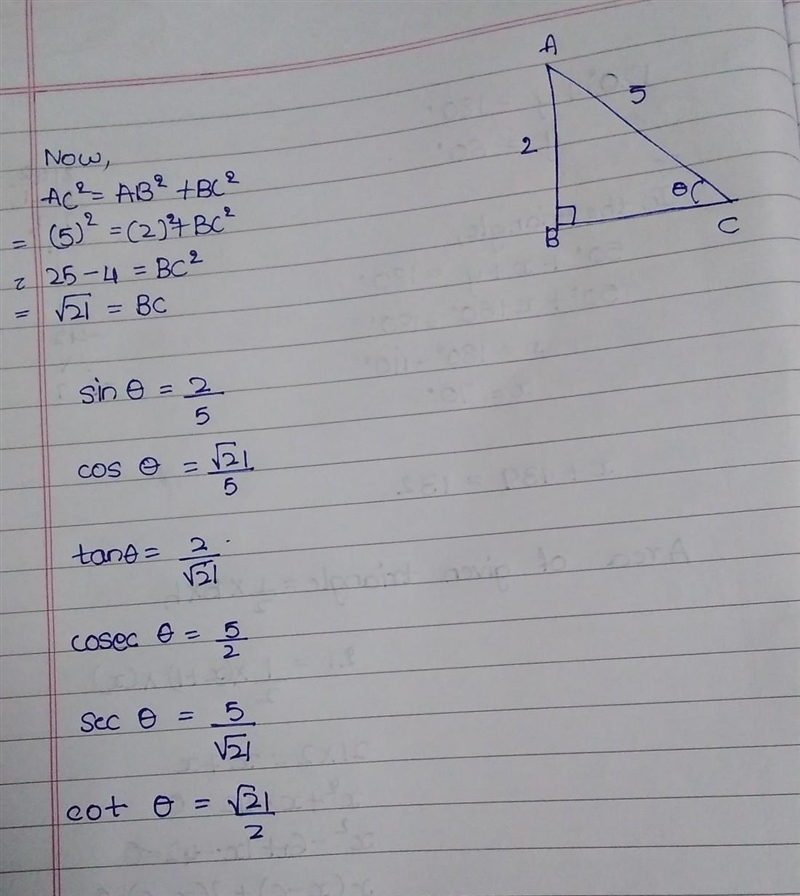 A
5
2
θ
B
C
Now,
AC² = AB² + BC²
= (5)² = (2)² + BC²
= 25 - 4 = BC²
= √21 = BC
sin θ = 2/5
cos θ = √21/5
tanθ = 2/√21
cosec θ = 5/2
sec θ = 5/√21
cot θ = √21/2